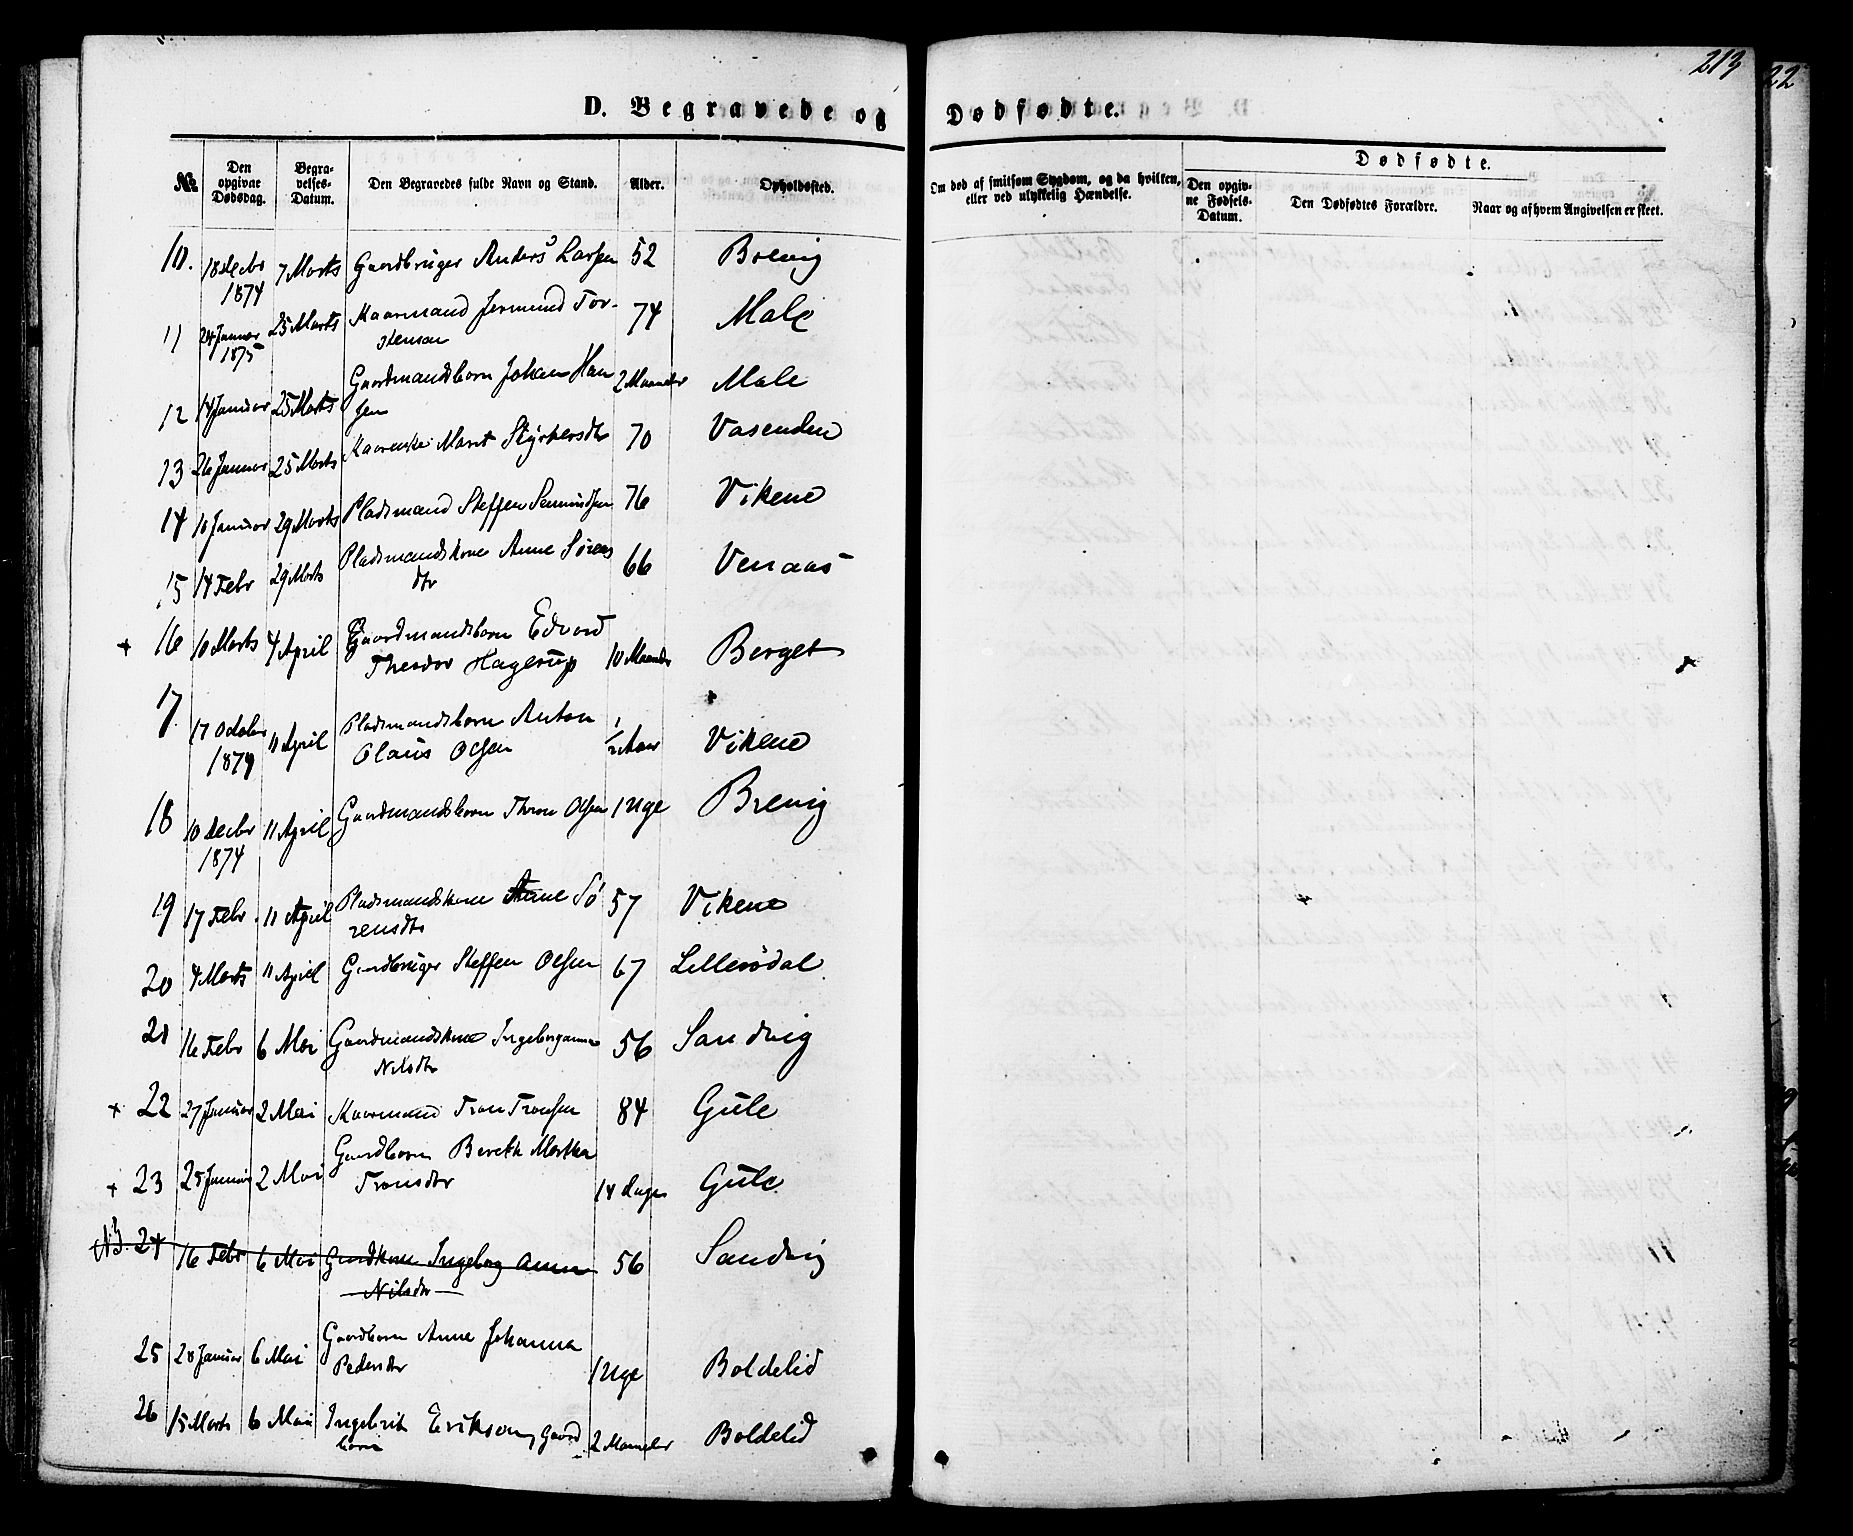 213
22
D. Begravede og Dødfødte.
№ Den opgivne Dødsdag. Begravelses-Datum. Den Begravedes fulde Navn og Stand. Alder. Opholdssted.
Om død af smitsom Sygdom, og da hvilken, eller ved ulykkelig Hændelse.
Dødfødte.
Den opgivne Fødsels-Datum. Den Dødfødtes Forældre. Naar og af hvem Angivelsen er skeet.
10. 18 Decbr 7 Marts Gaardbruger Anders Larsen 52 Brevig
1874
11 24 Januar 25 Marts Kaarmand Jermund Tor- 74 Male
1875 stensen
12 14 Januar 25 Marts Gaardmandsbarn Johan Han 2 Maaneder Male
sen
13 26 Januar 25 Marts Kaarenke Marit Styrkersdtr 70 Vasenden
14 10 Januar 29 Marts Pladsmand Steffen Semundsen 76 Vikene
15 14 Febr 29 Marts Pladsmandskone Anne Sørens 66 Venaas
dtr
+ 16 10 Marts 4 April Gaardmandsbarn Edvard
Theodor Hagerup 10 Maander Berget
17 17 October 11 April Pladsmandsbarn Anton 1/2 Aar Vikene
1874 Olaus Olsen
18 10 Decbr 11 April Gaardmandsbarn Thron Olsen 1 Uge Brevig
1874
19 17 Febr. 11 April Pladsmandskone Anne Sø 57 Vikene
rensdtr
20 4 Marts 11 April Gardbruger Steffen Olsen 67 Lillerødal
21 16 Febr 6 Mai Gaardmandskone Ingeborganna 56 Sandvig
Nilsdtr
+ 22 27 Januar 2 Mai Kaarmand Tron Tronsen 84 Gule
+ 23 25 Januar 2 Mai Gaardbarn Bereth Martha
Tronsdtr 14 Dage Gule
NB. 24 16 Febr 6 Mai Gardkone Ingeborg Anna 56 Sandvig
Nilsdtr
25 28 Januar 6 Mai Gaardbarn Anne Johanna
Pedersdtr 1 Uge Boldelid
26 15 Marts 6 Mai Ingebrit Erikson, Gaard 2 Maaneder Boldelid
barn